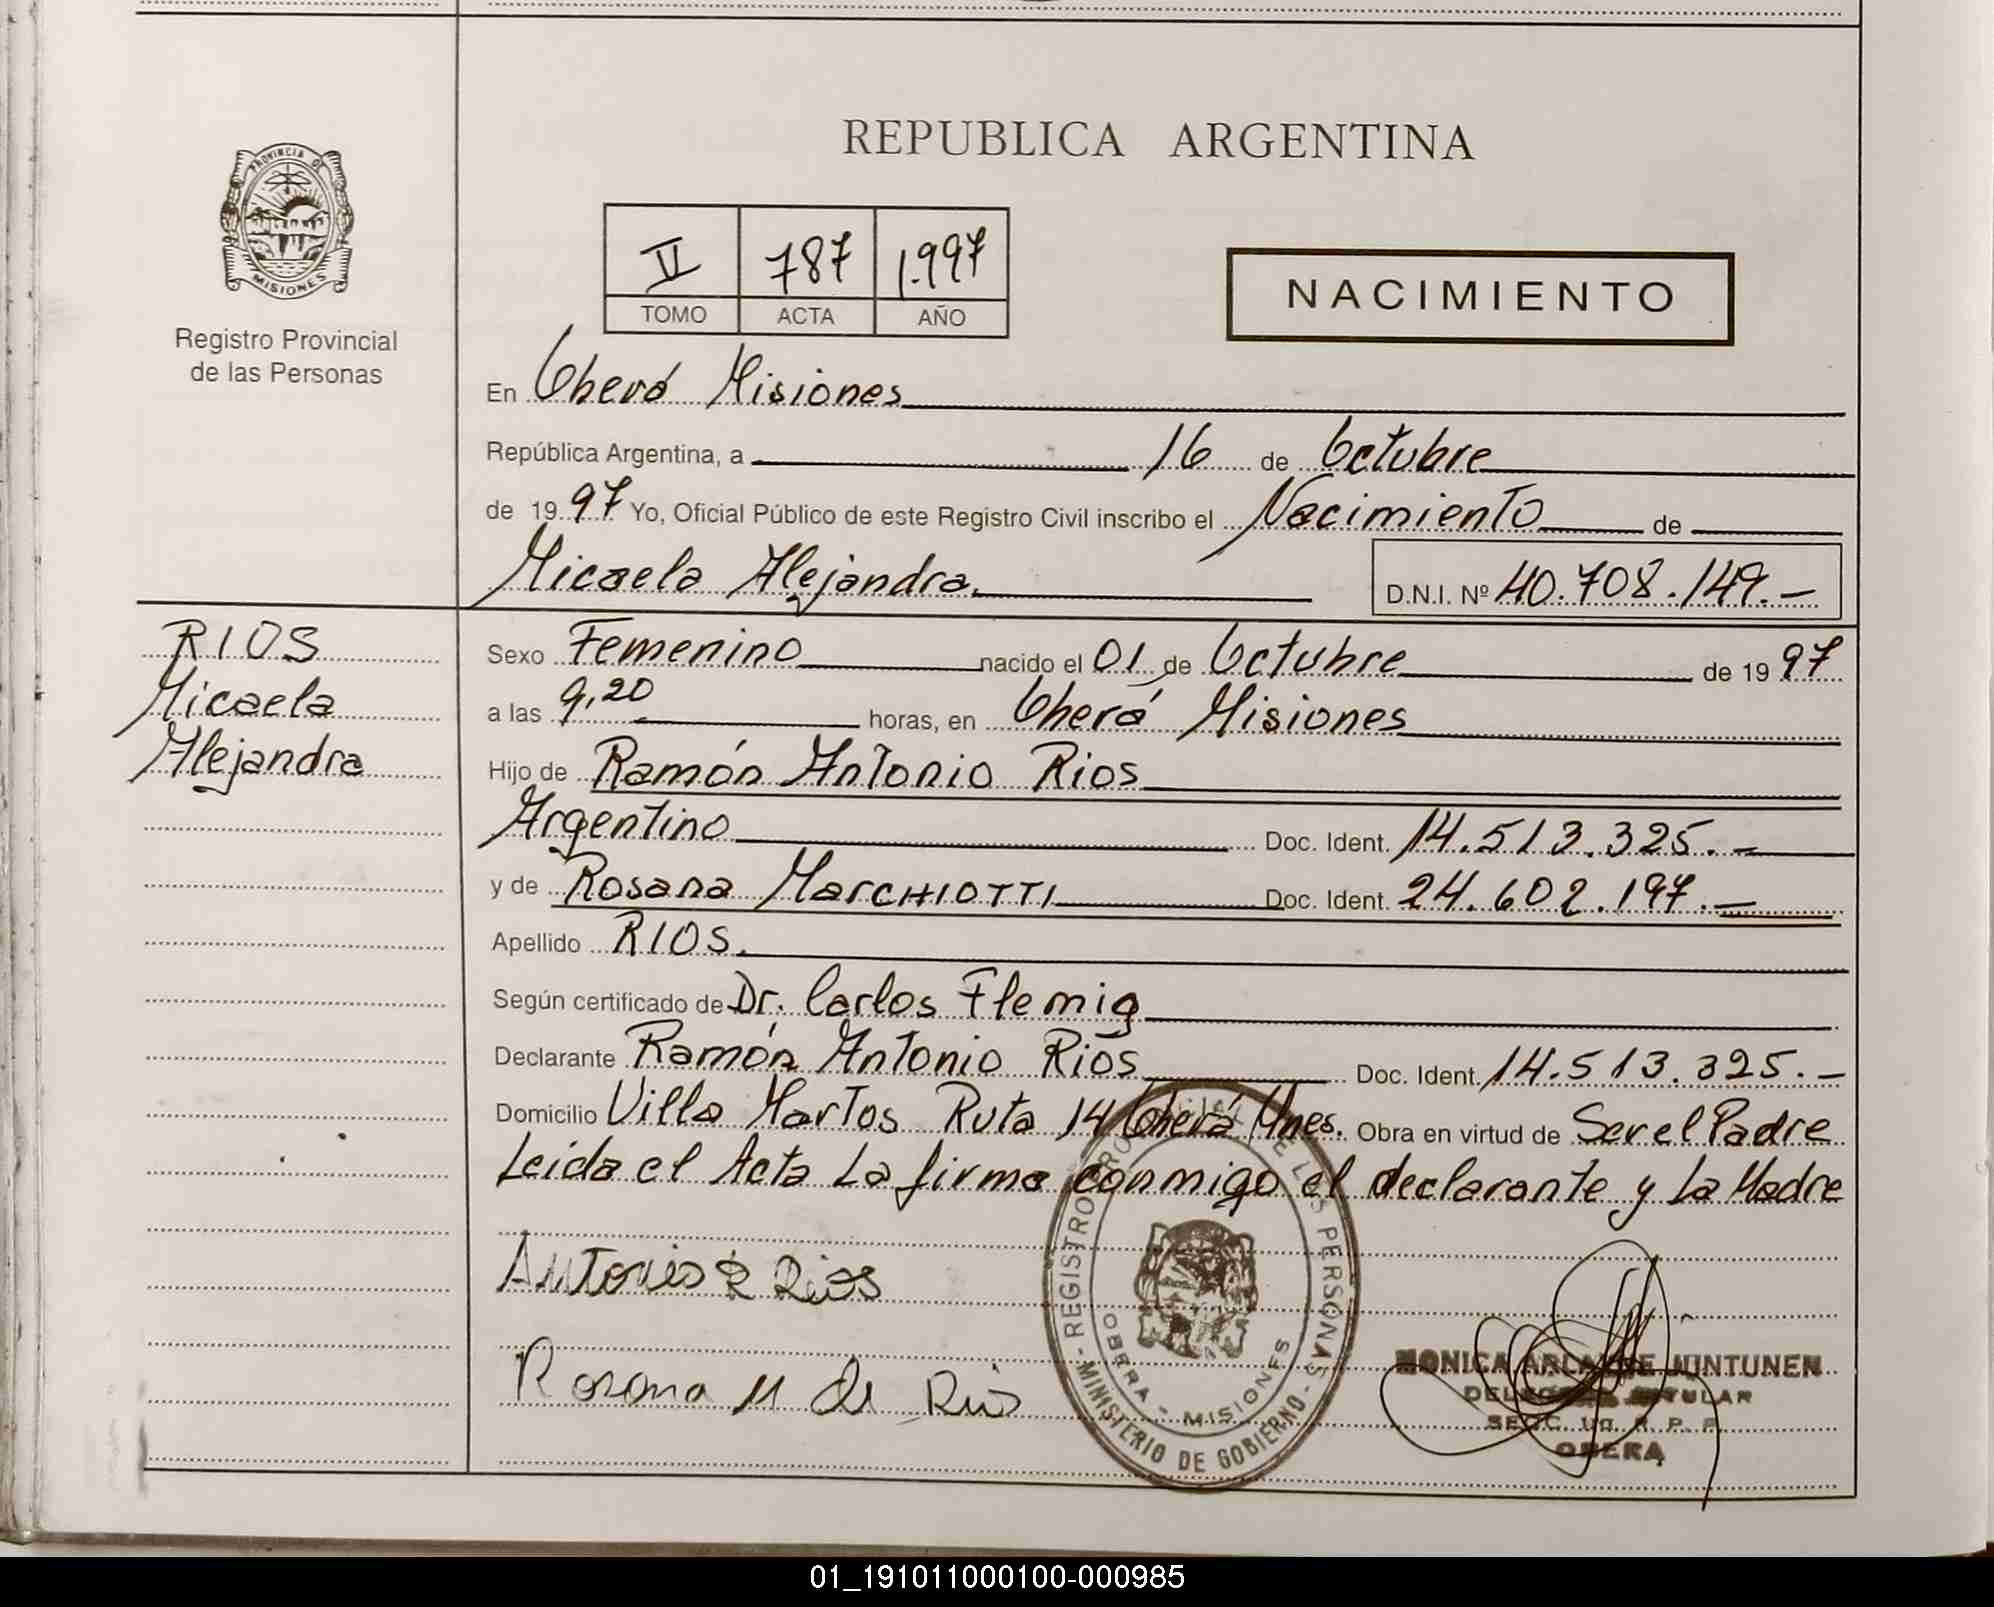 REPUBLICA ARGENTINA
PROVINCIA DE
MISIONES
Registro Provincial
de las Personas
II 787 1.997
TOMO ACTA AÑO
NACIMIENTO
En Oberá Misiones
República Argentina, a 16 de Octubre
de 19 97 Yo, Oficial Público de este Registro Civil inscribo el Nacimiento de
Micaela Alejandra. D.N.I. Nº 40.708.149.-
RIOS
Micaela
Alejandra
Sexo Femenino nacido el 01 de Octubre de 19 97
a las 9,20 horas, en Oberá Misiones
Hijo de Ramón Antonio Rios
Argentino Doc. Ident. 14.513.325.-
y de Rosana MarCHIOTTI Doc. Ident. 24.602.197.-
Apellido RIOS.
Según certificado de Dr. Carlos Flemig
Declarante Ramón Antonio Rios Doc. Ident. 14.513.325.-
Domicilio Villa Martos Ruta 14 Oberá Mnes. Obra en virtud de Ser el Padre
Leida el Acta La firma conmigo el declarante y La Madre
Antonio R Rios
Rosana M de Rios
REGISTRO DE LAS PERSONAS
OBERA - MISIONES
- MINISTERIO DE GOBIERNO -
MONICA JUNTUNEN
TITULAR
OBERA
01_191011000100-000985